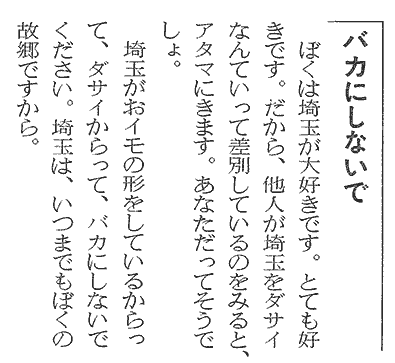 バカにしないで
ぼくは埼玉が大好きです。とても好
きです。だから、他人が埼玉をダサイ
なんていって差別しているのをみると、
アタマにきます。あなただってそうで
しょ。
埼玉がおイモの形をしているからっ
て、ダサイからって、バカにしないで
ください。埼玉は、いつまでもぼくの
故郷ですから。